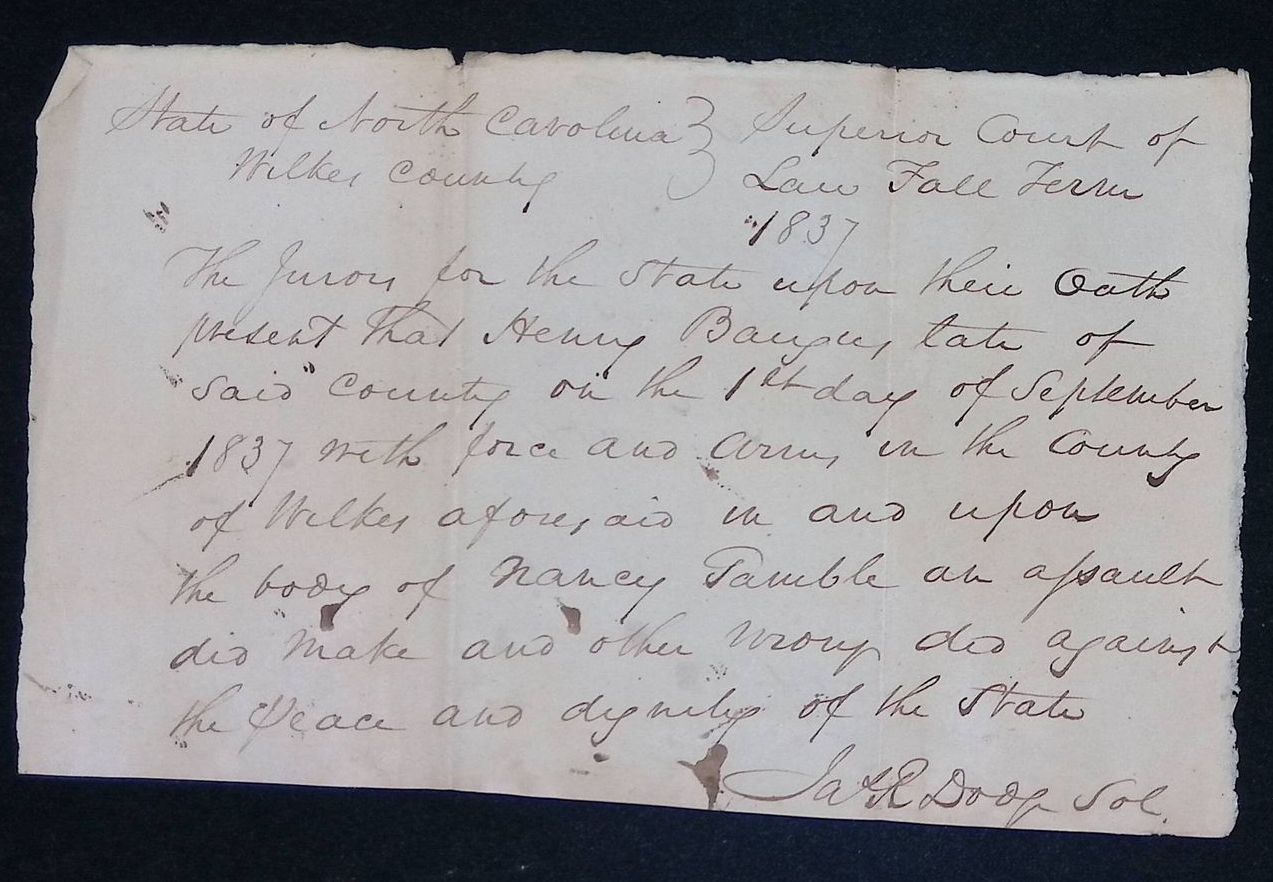 State of North Carolina } Superior Court of
Wilkes County } Law Fall Term
1837
The Jurors for the State upon their Oath
present that Henry Baugus, late of
said County on the 1st day of September
1837 with force and Arms, in the County
of Wilkes aforesaid in and upon
the body of Nancy Tamble an assault
did Make and other wrongs did against
the Peace and dignity of the State
Jas R Dodge Sol.